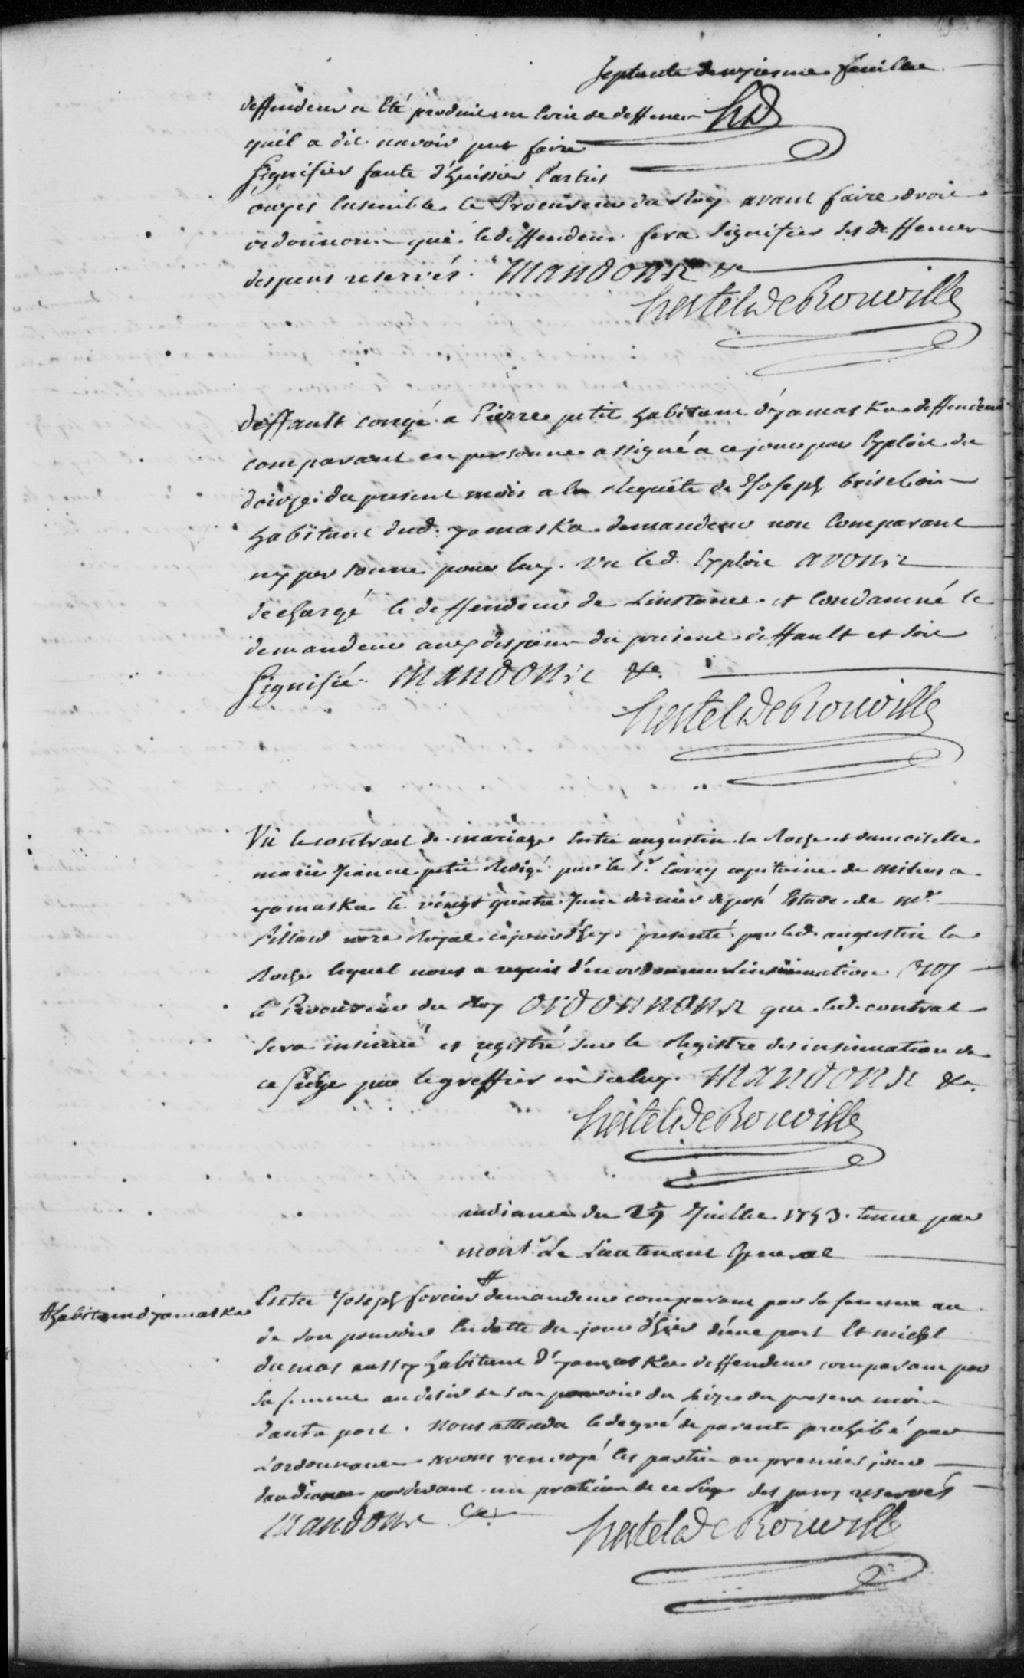 Septante deuxiesme feuillee
deffendeur a été produit un Ecrit de deffenses HD
qu'il a dit n'avoir put faire
Signifier faute d'huissier Parties
ouyes Ensemble le Procureur du Roy avant faire droit
ordonnons que le deffendeur fera Signifier ses deffenses
despens reservés. Mandons &c
hertel De Rouville
deffault congé a Pierre petit habitant d'yamaska deffendeur
comparant en personne assigné a ce jour par Exploit du
douze du present mois a la Requête de Joseph brisebois
habitant dud. yamaska demandeur non Comparant
ny personne pour luy. Vu led. Exploit avons
dechargé le deffendeur de Linstance et Condamné le
demandeur aux despens du present deffault et soit
Signifié Mandons &c.
hertel De Rouville
Vû le contract de mariage Entre augustin la Roze et damoiselle
marie Jeanne petit Redigé par le Sr. capitaine de milices a
yamaska le vingt quatre Juin dernier deposé Estude de Mr.
Pillard nore Royal cejourd'huy presenté par led. augustin la
Roze lequel nous a requis d'en ordonner Linsinuation ouy
le Procureur du Roy ordonnons que led. contrat
sera insinué et registré sur le Registre des insinuation de
ce Siege par le greffier en iceluy. Mandons &c.
hertel De Rouville
audiance du 29 Juillet 1753. tenue par
monsr. Le Lieutenant General
habitant d'yamaska
Entre Joseph forcier demandeur comparant par sa femme au
de son pouvoir En datte du jour d'hier d'une part Et michel
dumas aussy habitant d'yamaska deffendeur comparant par
sa femme au desir de son pouvoir du seize du present mois
d'autre part. Nous attendu le degré de parenté prohibé par
L'ordonnance avons renvoyé les parties au premier jour
d'audiance pardevant un praticien de ce Siege despens reservés
Mandons &c.
hertel De Rouville